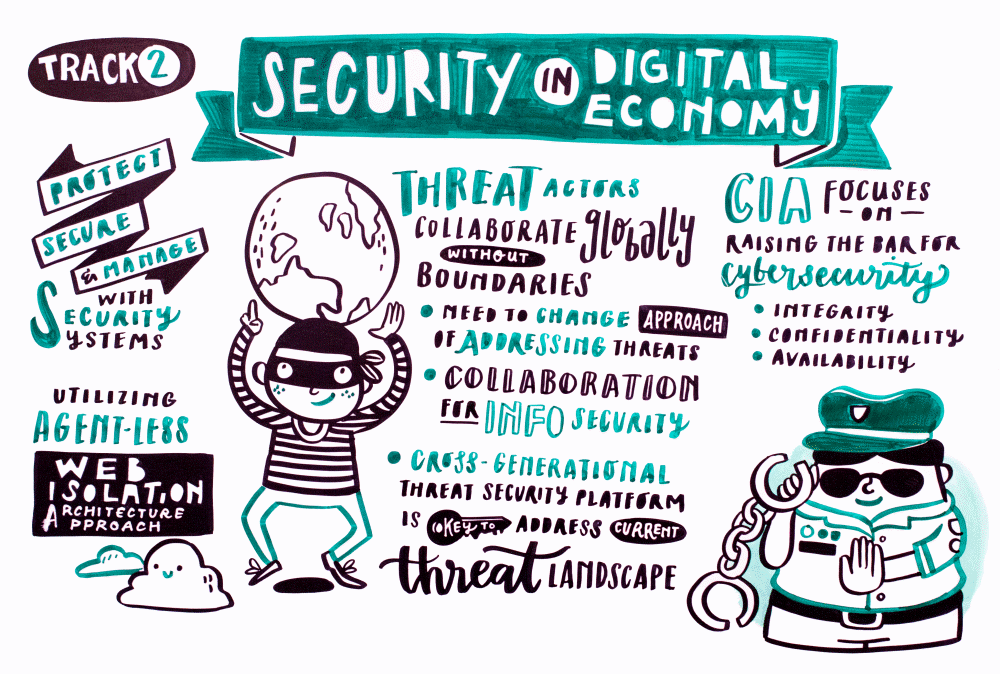 TRACK 2
SECURITY IN DIGITAL
ECONOMY
PROTECT
SECURE
& MANAGE
WITH
SECURITY
SYSTEMS
UTILIZING
AGENT-LESS
WEB
ISOLATION
ARCHITECTURE
APPROACH
THREAT ACTORS
COLLABORATE globally
WITHOUT
BOUNDARIES
• NEED TO CHANGE APPROACH
OF ADDRESSING THREATS
• COLLABORATION
FOR INFO SECURITY
• CROSS-GENERATIONAL
THREAT SECURITY PLATFORM
IS KEY TO ADDRESS CURRENT
threat LANDSCAPE
CIA FOCUSES
— ON —
RAISING THE BAR FOR
cybersecurity
• INTEGRITY
• CONFIDENTIALITY
• AVAILABILITY